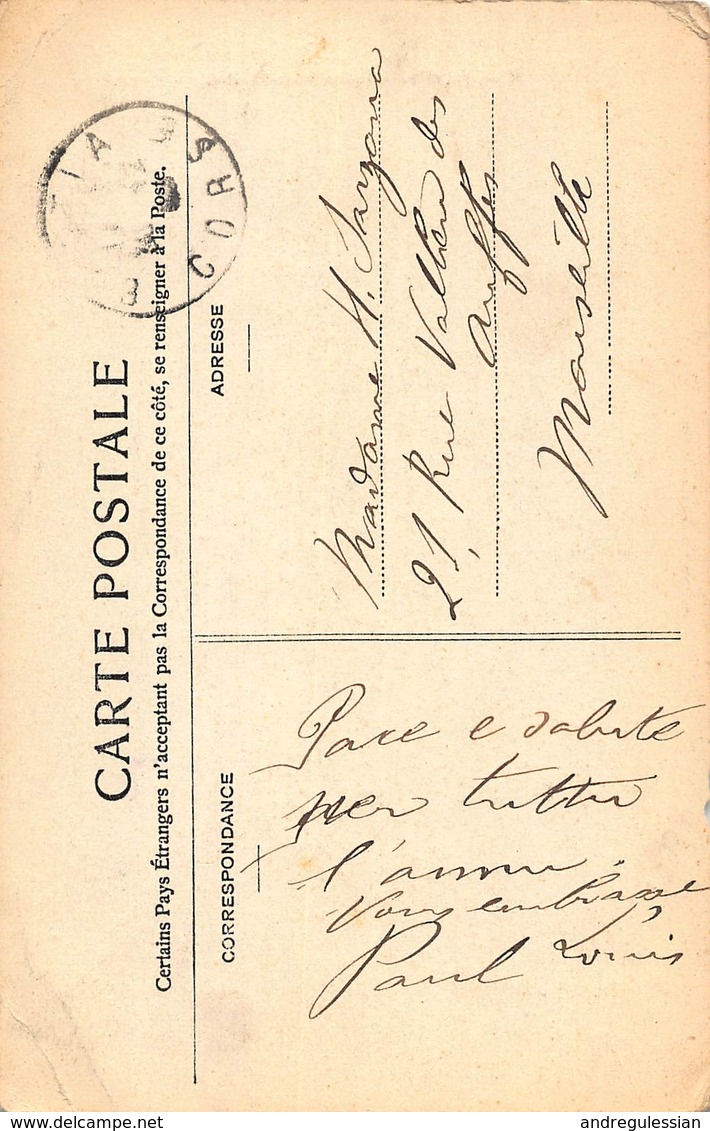 CARTE POSTALE
Certains Pays Étrangers n'acceptant pas la Correspondance de ce côté, se renseigner à la Poste.
CORRESPONDANCE
Pace e salute
per tuttu
l'annu.
Vous embrasse
Paul Louis
ADRESSE
Madame H.
21, Rue Vallon des
Auffes
Marseille
BASTIA
CORSE
delcampe.net
andregulessian